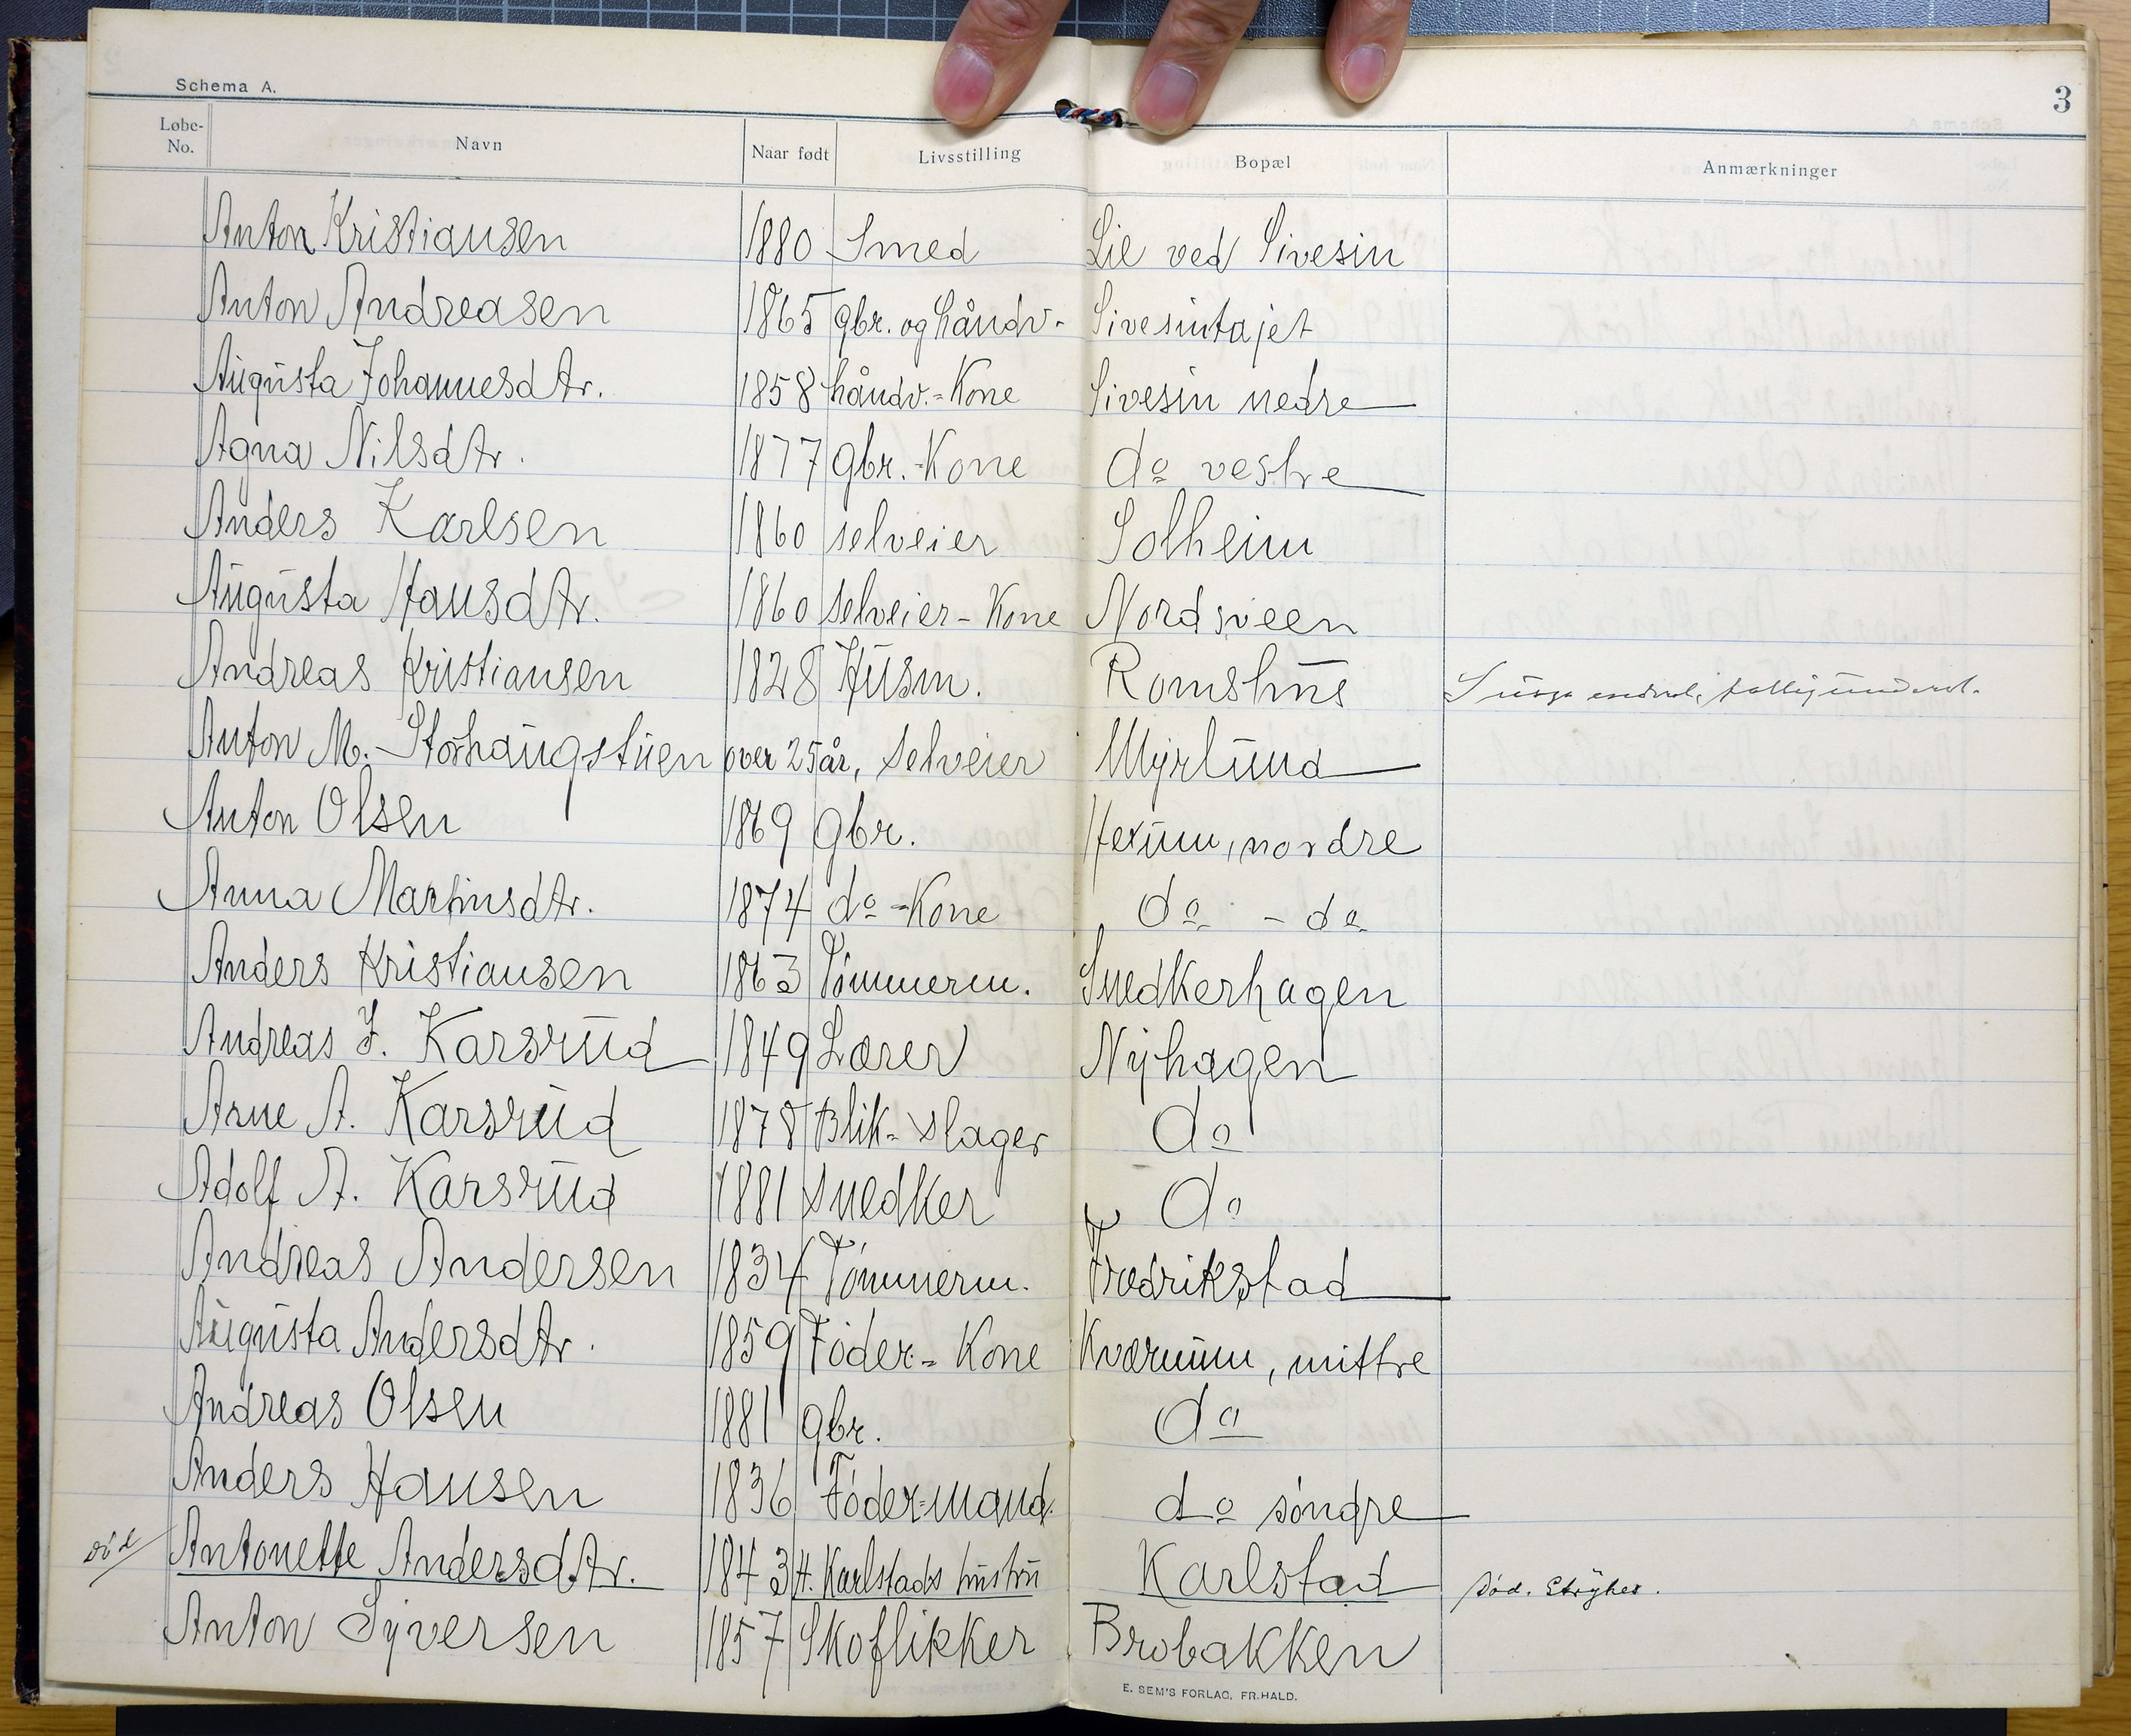 Schema A.
3
Løbe-No. Navn Naar født Livsstilling Bopæl Anmærkninger
Anton Kristiansen 1880 Smed Lie ved Sivesin
Anton Andreasen 1865 gbr. og håndv- Sivesintajet
Augusta Johannesdtr. 1858 håndv.-Kone Sivesin nedre
Agna Nilsdtr. 1877 gbr.-Kone do vestre
Anders Karlsen 1860 selveier Solheim
Augusta Hansdtr. 1860 selveier-Kone Nordsveen
Andreas Kristiansen 1828 Husm. Romshus
Anton M. Storhaugstuen over 25 år, selveier Myrlund
Anton Olsen 1869 gbr. Hexum, nordre
Anna Martinsdtr. 1874 do -Kone do - do
Anders Kristiansen 1863 Tömmerm. Snedkerhagen
Andreas J. Karsrud 1849 Lærer Nyhagen
Arne A. Karsrud 1878 Blik-slager do
Adolf A. Karsrud 1881 snedker do
Andreas Andersen 1834 Tömmerm. Fredrikstad
Augusta Andersdtr. 1859 Föder-Kone Kværnum, mittre
Andreas Olsen 1881 gbr. do
Anders Hansen 1836 Föder-mand. do söndre
död Antonette Andersdtr. 1843 H. Karlstads hustru Karlstad död. Stryges.
Anton Syversen 1857 Skoflikker Brobakken
E. SEM'S FORLAG, FR.HALD.